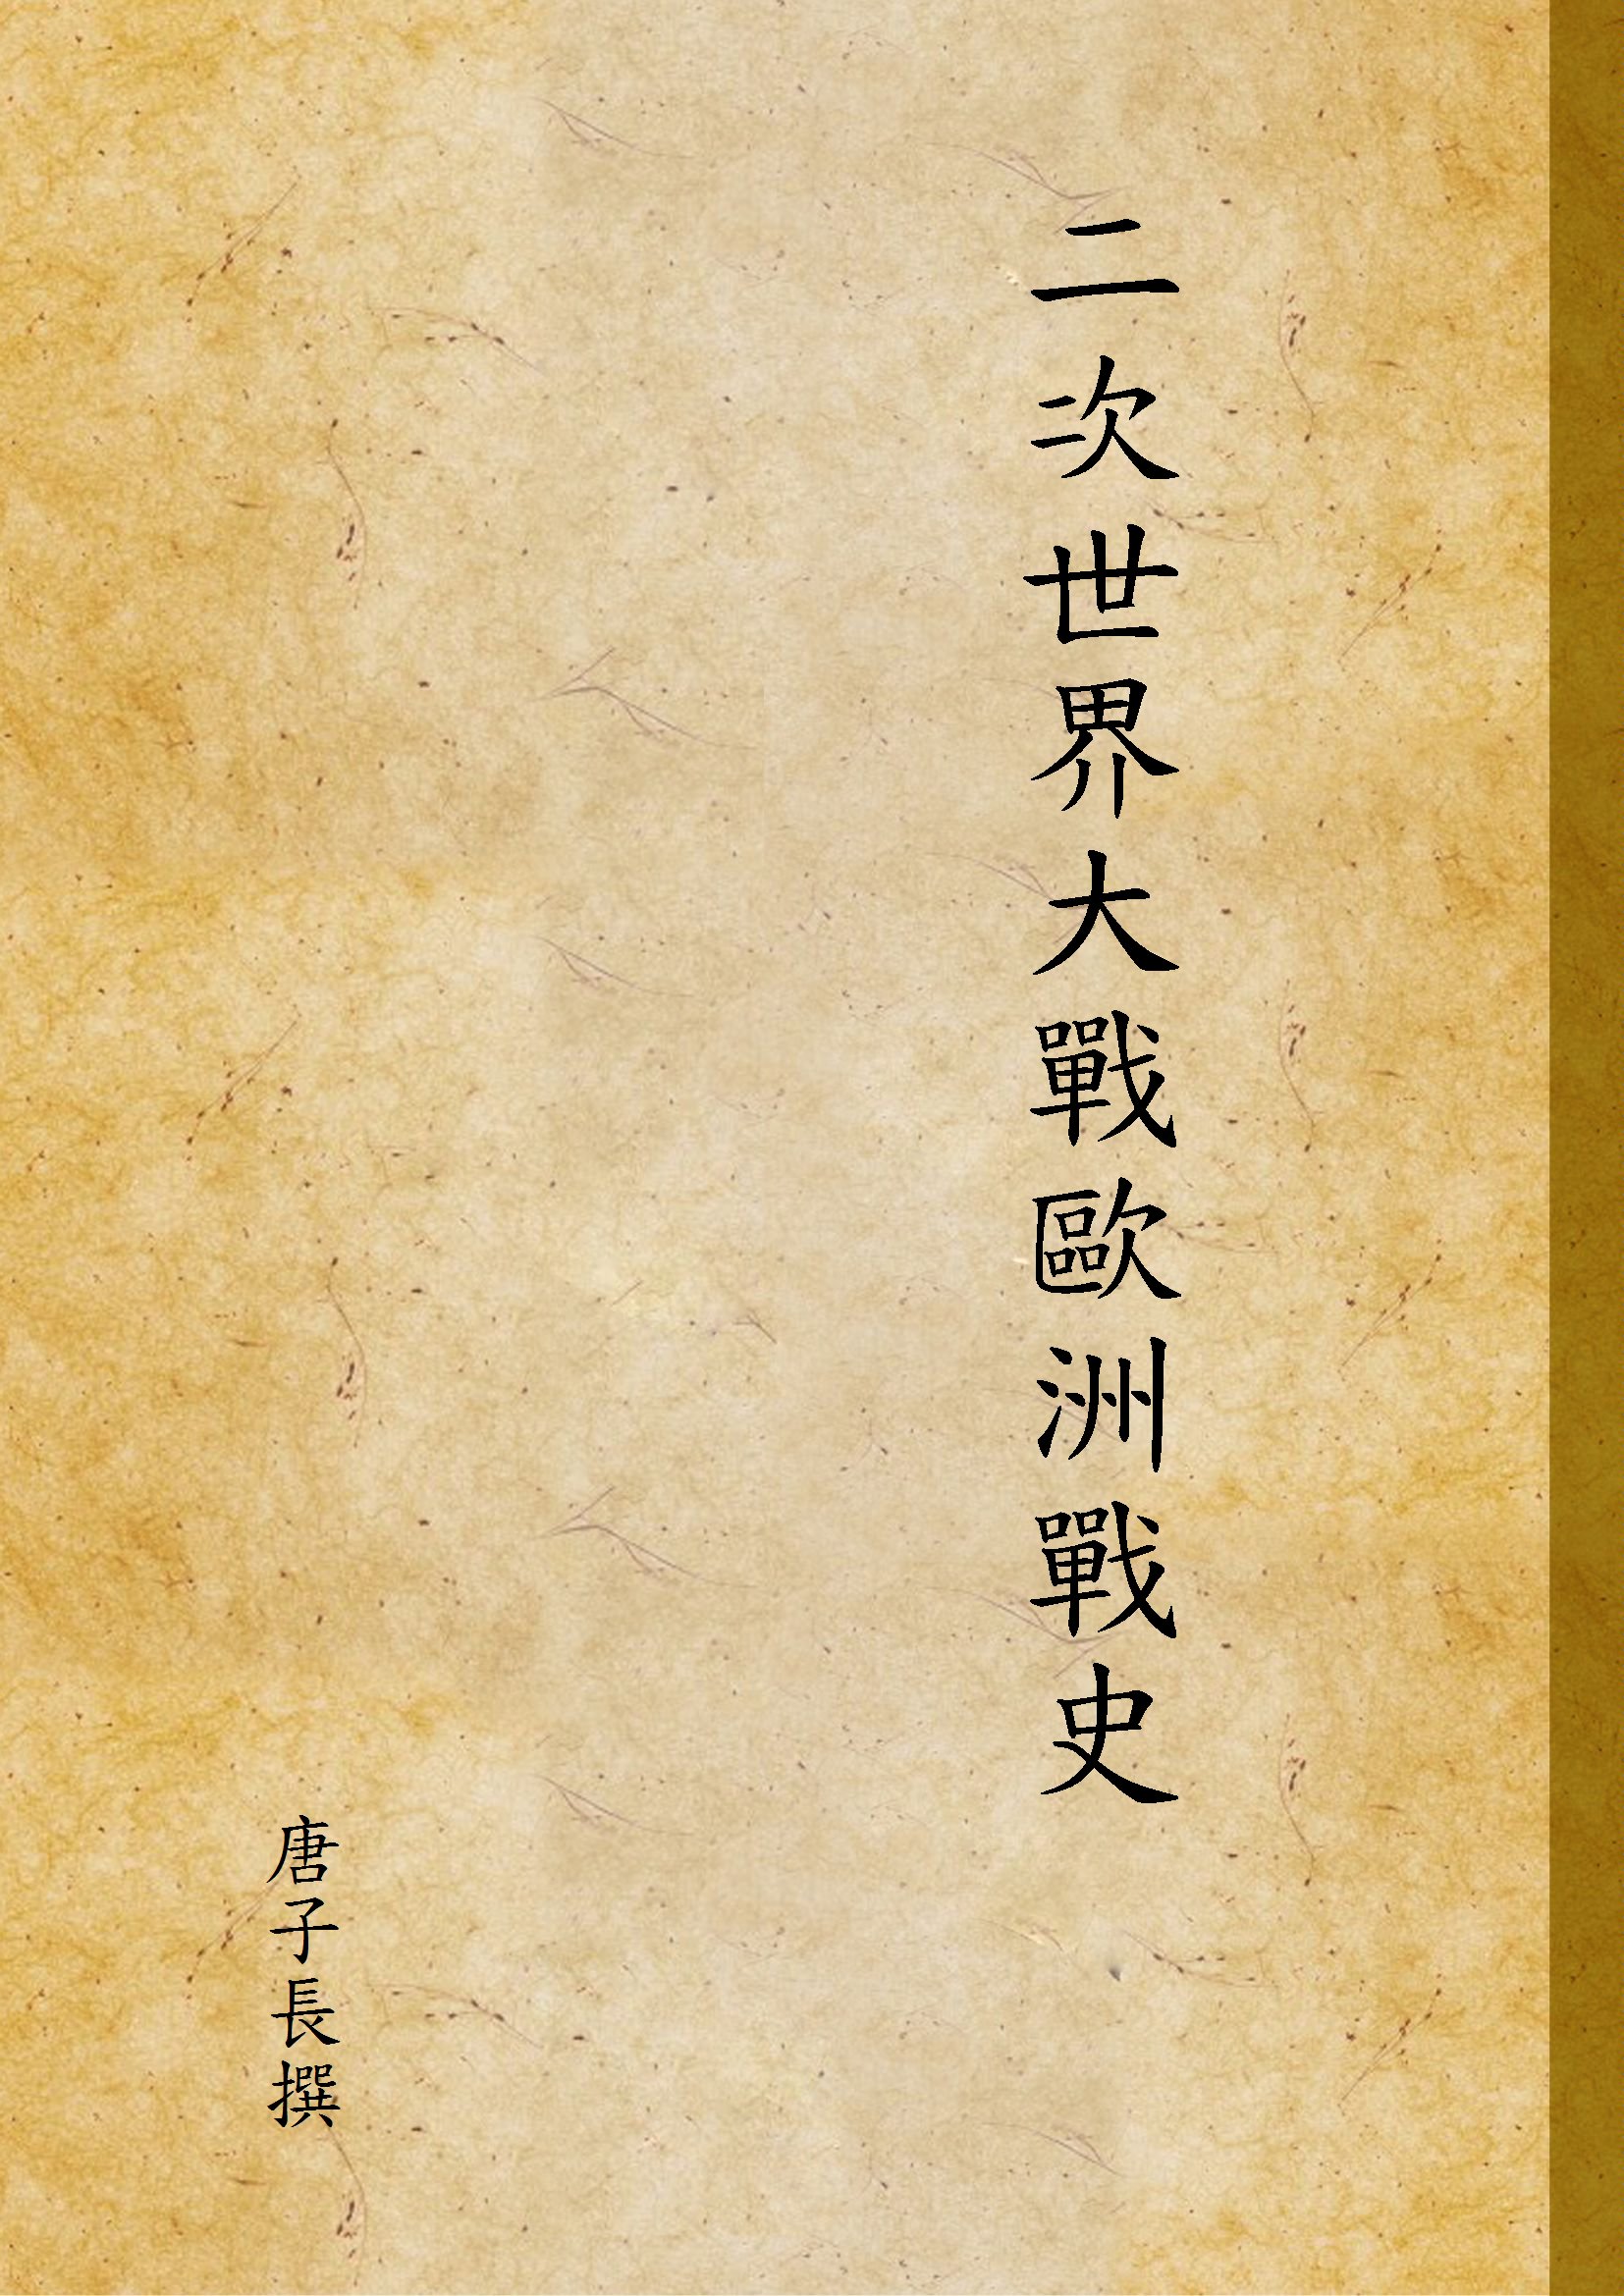 二次世界大戰歐洲戰史
唐子長撰